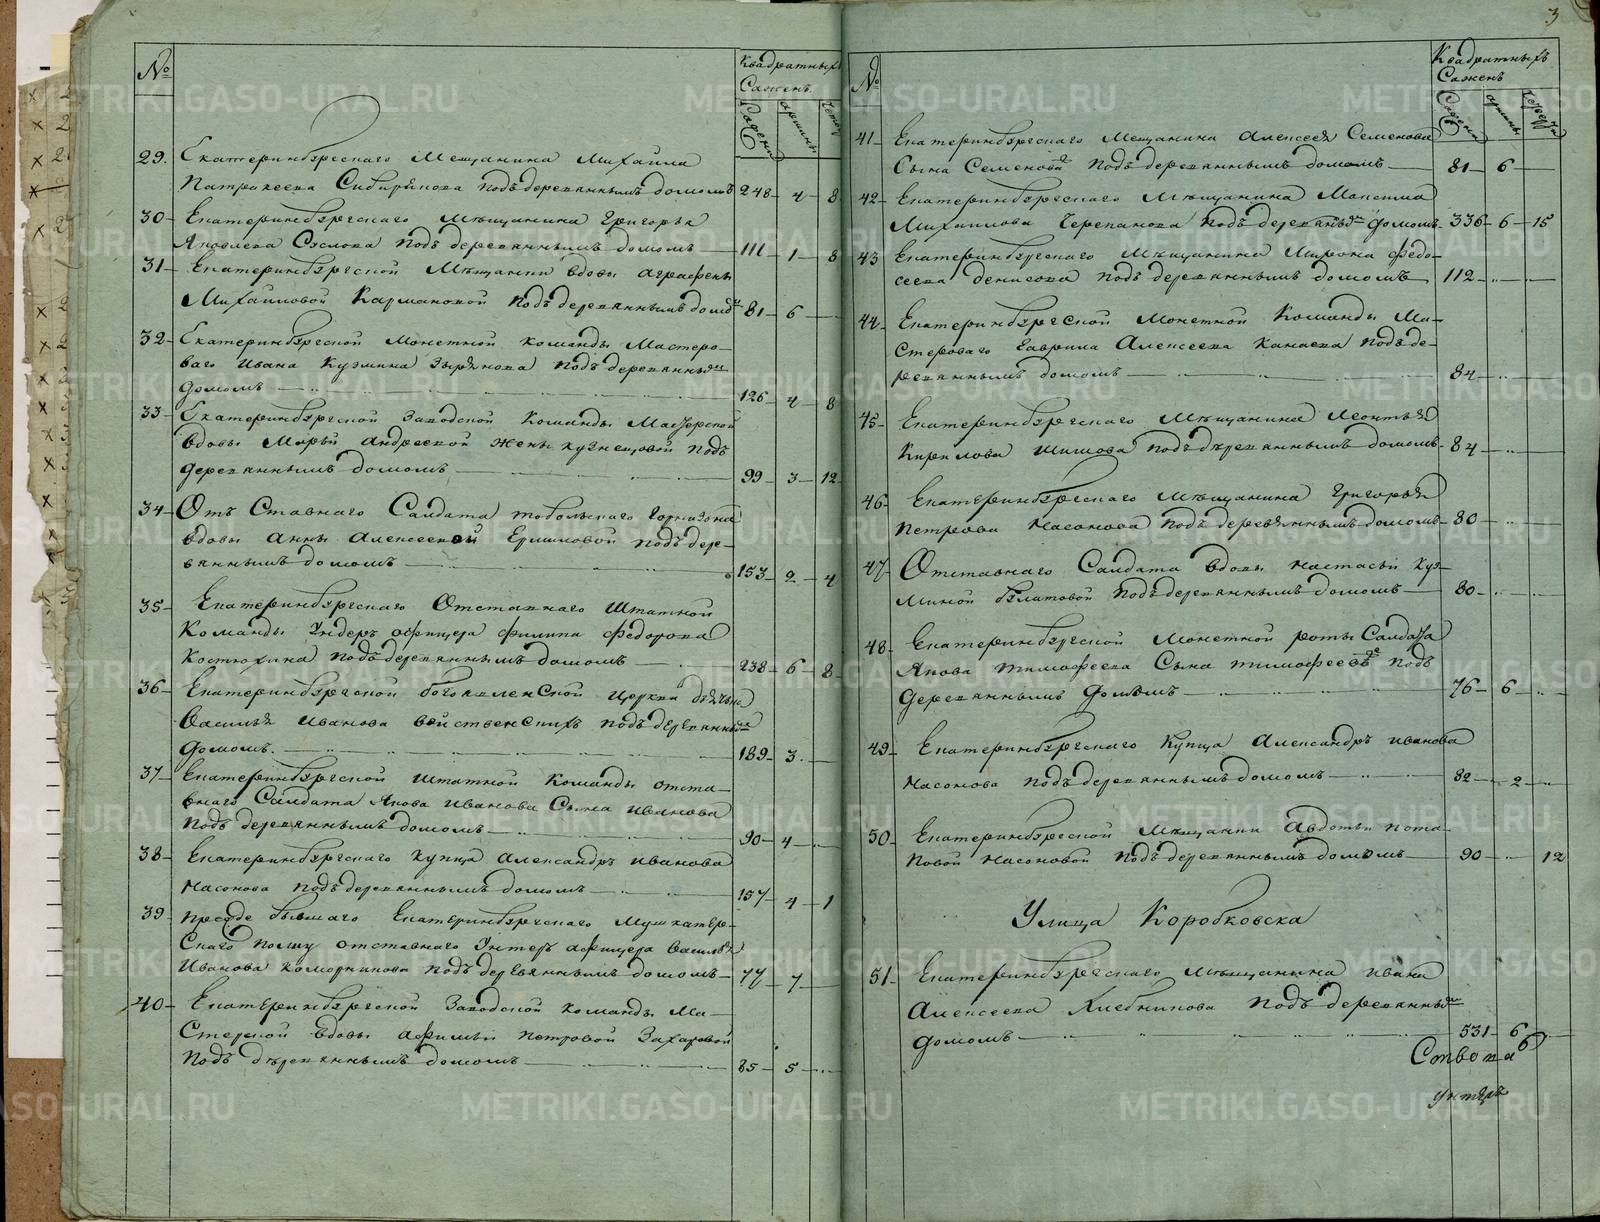 №
Квадратныхъ
Саженъ
Сажени
аршины
29. Екатеринбургскаго Мещанина Михаила
Патракеева Сибирякова подъ деревяннымъ домомъ 248 - 4 - 8
30 Екатеринбургскаго Мещанина Григорья
Яковлева Суслова подъ деревяннымъ домомъ 111 - 1 - 8
31 Екатеринбургской Мещанки вдовы аграфены
Михайловой Кармановой подъ деревяннымъ домомъ 81 - 6
32 Екатеринбургской Монетной команды Мастеро-
ваго Ивана Кузмина Зырянова подъ деревяннымъ
домомъ 126 - 4 - 8
33 Екатеринбургской Заводской Команды Мастерской
вдовы Марьи андреевой жены кузнецовой подъ
деревяннымъ домомъ 99 - 3 - 12
34 Отъ Ставнаго Салдата тобольскаго Горнизона
вдовы анны алексеевой Ершловой подъ дере-
вяннымъ домомъ 153 - 2 - 4
35 Екатеринбургскаго Отставнаго Штатной
Команды Ундеръ офицера филипа федорова
Костюхина подъ деревяннымъ домомъ 238 - 6 - 8
36 Екатеринбургской богоявленской церкви дьячька
Василья иванова подъ деревяннымъ
домомъ. 189 - 3
37 Екатеринбургской штатной Команды отста-
внаго Салдата Якова иванова Сына иванова
подъ деревяннымъ домомъ 90 - 4
38 Екатеринбургскаго купца александръ иванова
Насонова подъ деревяннымъ домомъ 157 - 4 - 1
39 бывшаго Екатеринбургскаго Мушкатер-
Скаго полку отставнаго Унтеръ афицера Василья
Иванова коморникова подъ деревяннымъ домомъ 77 - 7
40 Екатеринбургской Заводской команды Ма-
Стерской вдовы афимьи петровой Захаровой
подъ деревяннымъ домомъ 85 - 5
3
№
Квадратныхъ
Саженъ
Сажени
аршины
41 Екатеринбургскаго Мещанина алексея Семенова
Сына Семенова подъ деревяннымъ домомъ 81 - 6
42 Екатеринбургскаго Мещанина Максима
Михаилова Черепанова подъ деревяннымъ домомъ 336 - 6 - 15
43 Екатеринбургскаго Мещанина Мирона федо-
сеева денисова подъ деревяннымъ домомъ 112
44 Екатеринбургской монетной Команды Ма-
стероваго Гаврила Алексеева Канаева подъ де-
ревяннымъ домомъ 84
45 Екатеринбургскаго Мещанина Леонтья
Кирилова Шишова подъ деревяннымъ домомъ 84
46 Екатеринбургскаго Мещанина Григорья
петрова Насонова подъ деревяннымъ домомъ 80
47 Отставнаго Салдата вдовы настасьи куз-
миной булатовой подъ деревяннымъ домомъ 80
48 Екатеринбургской Монетной роты Салдата
Якова тимофеева Сына тимофеева подъ
деревяннымъ домомъ 76 - 6
49 Екатеринбургскаго Купца александръ иванова
Насонова подъ деревяннымъ домомъ 82 - 2
50 Екатеринбургской Мещанки авдотьи пота-
повой насоновой подъ деревяннымъ домомъ 90 - 12
Улица Коробковска
51 Екатеринбургскаго Мещанина ивана
алексеева хлебникова подъ деревяннымъ
домомъ 531 - 6
унтеръ
METRIKI.GASO-URAL.RU